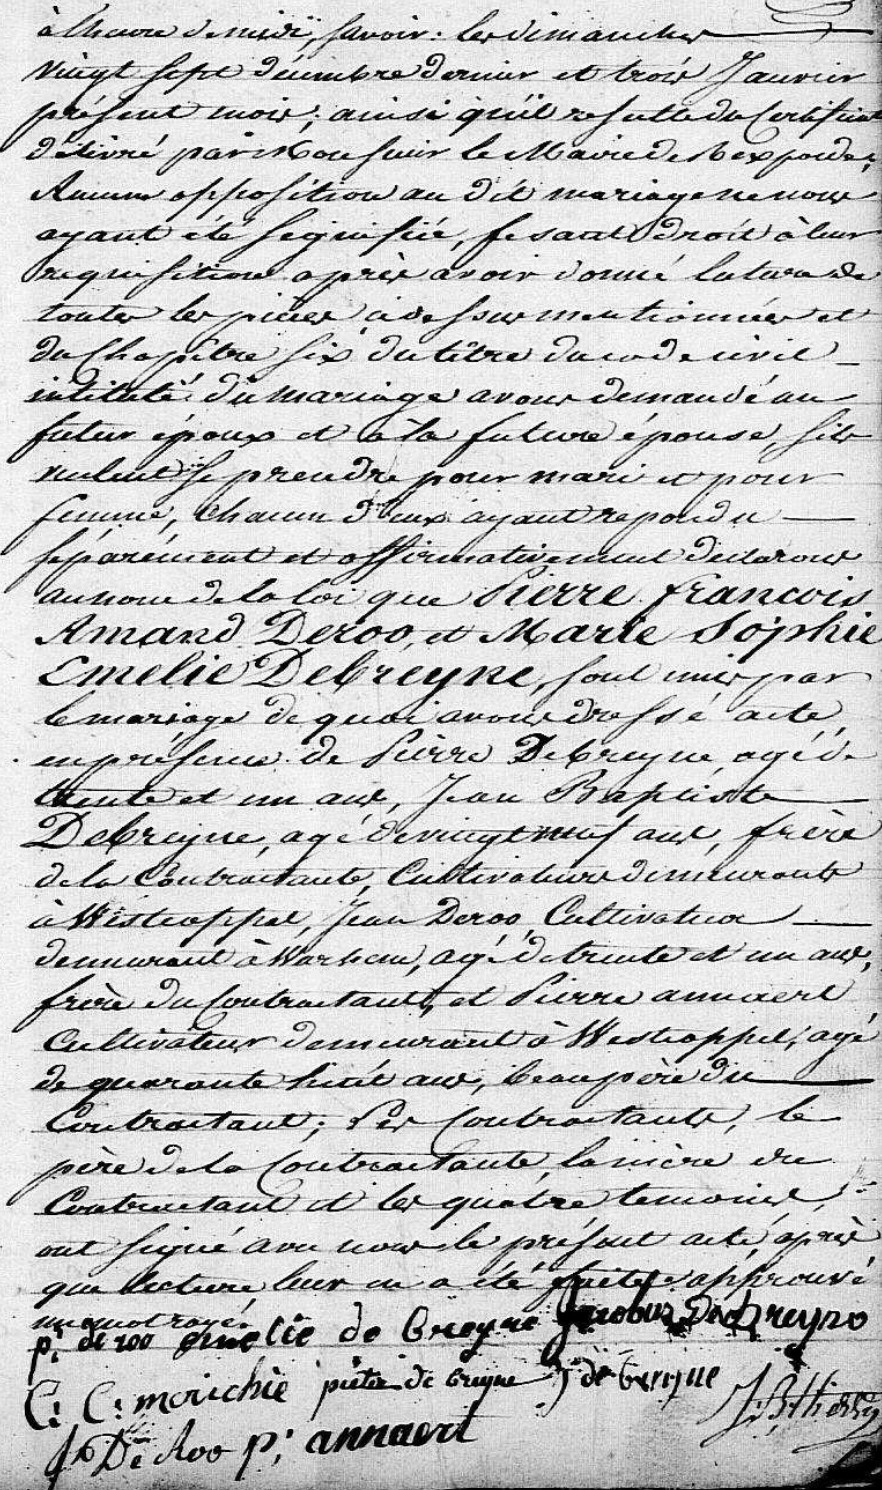 à l'heure de midi, savoir: les dimanches
vingt sept décembre dernier et trois Janvier
présent mois; ainsi qu'il resulte du Certificat
délivré par Monsieur le Maire de Rexpoede,
Aucune opposition au dit mariage ne nous
ayant été signifiée, fesant droit à leur
requisition après avoir donné lecture de
toutes les pièces ci dessus mentionnées et
du Chapître six du tître du code civil
intitulé: du Mariage avons demandé au
futur époux et à la future épouse, s'ils
veulent se prendre pour mari et pour
femme, Chacun d'eux ayant repondu
séparément et affirmativement déclarons
au nom de la loi que Pierre François
Amand Deroo, et Marie Sophie
Emelie Debreyne, sont unis par
le mariage de quoi avons dressé acte
en présence de Pierre Debreyne agé de
trente et un ans, Jean Baptiste
Debreyne, agé de vingt neuf ans, frère
de la Contractante, Cultivateurs demeurants
à Westcappel, Jean Deroo, Cultivateur
demeurant à Warhem, agé de trente et un ans,
frère du Contractant, et Pierre annaert
Cultivateur demeurant à Westcappel, agé
de quarante huit ans, beau père du
Contractant; Les Contractants, le
père de la Contractante, la mère du
Contractant et les quatre temoins,
ont signé avec nous le présent acte après
que lecture leur en a été faite approuvé
un mot rayé.
p: de roo emelie de breyne Jacobus Debreyne
C: C: morichie pieter de breyne J de breyne
J De Roo p: annaert